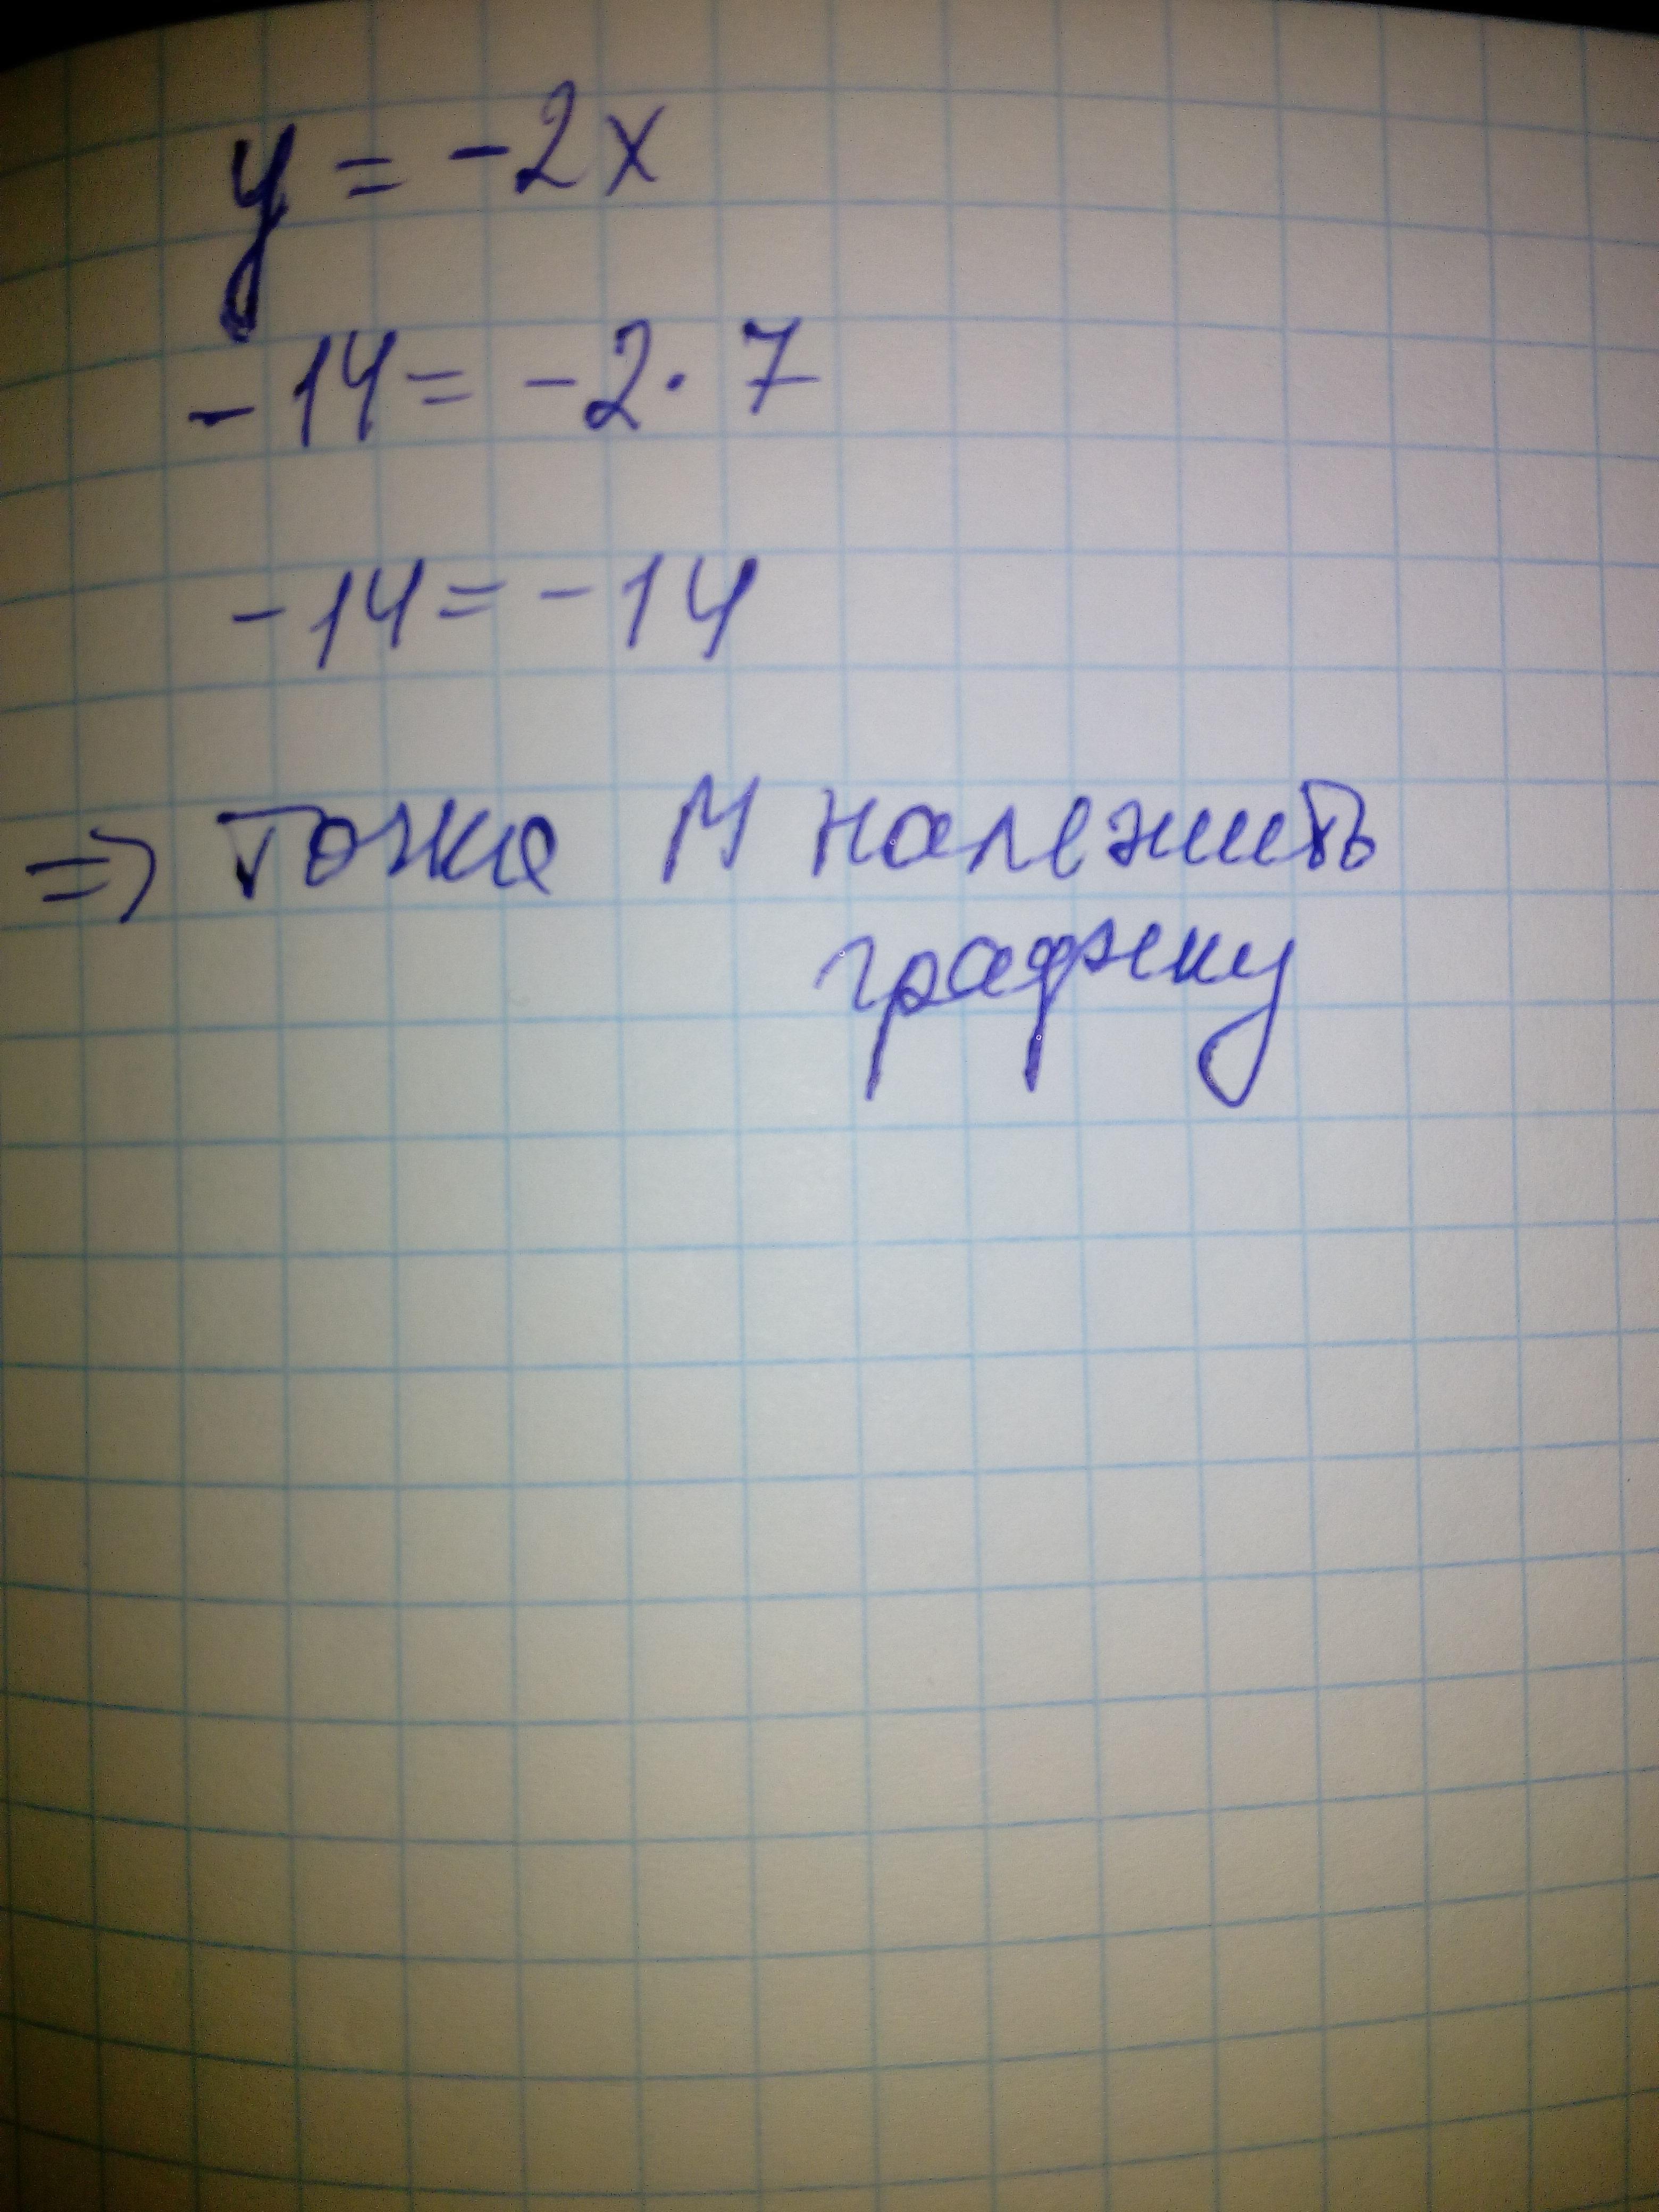 y = -2x
-14 = -2 · 7
-14 = -14
=> точка М належить
графіку